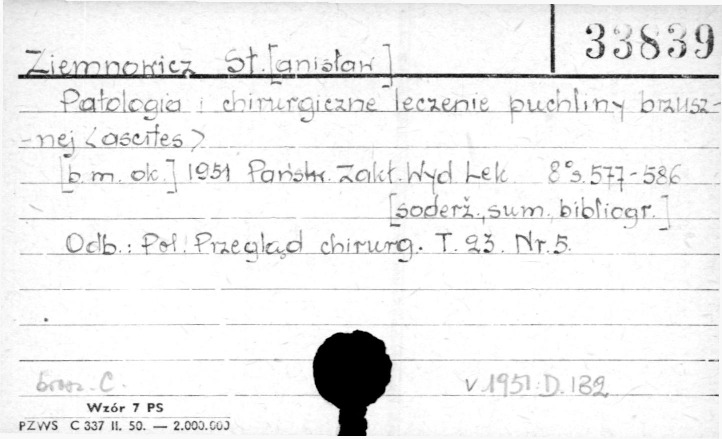 33839
Ziemnowicz St.[anisław]
Patologia i chirurgiczne leczenie puchliny brzusz-
-nej <ascites>
[b.m.ok.] 1951 Państw. Zakł. Wyd Lek 8° s. 577-586
[soderž., sum., bibliogr.]
Odb.: Pol. Przegląd chirurg. T. 23. Nr. 5.
brosz. C.
v 1951. D. 132
Wzór 7 PS
PZWS C 337 II. 50. — 2.000.000